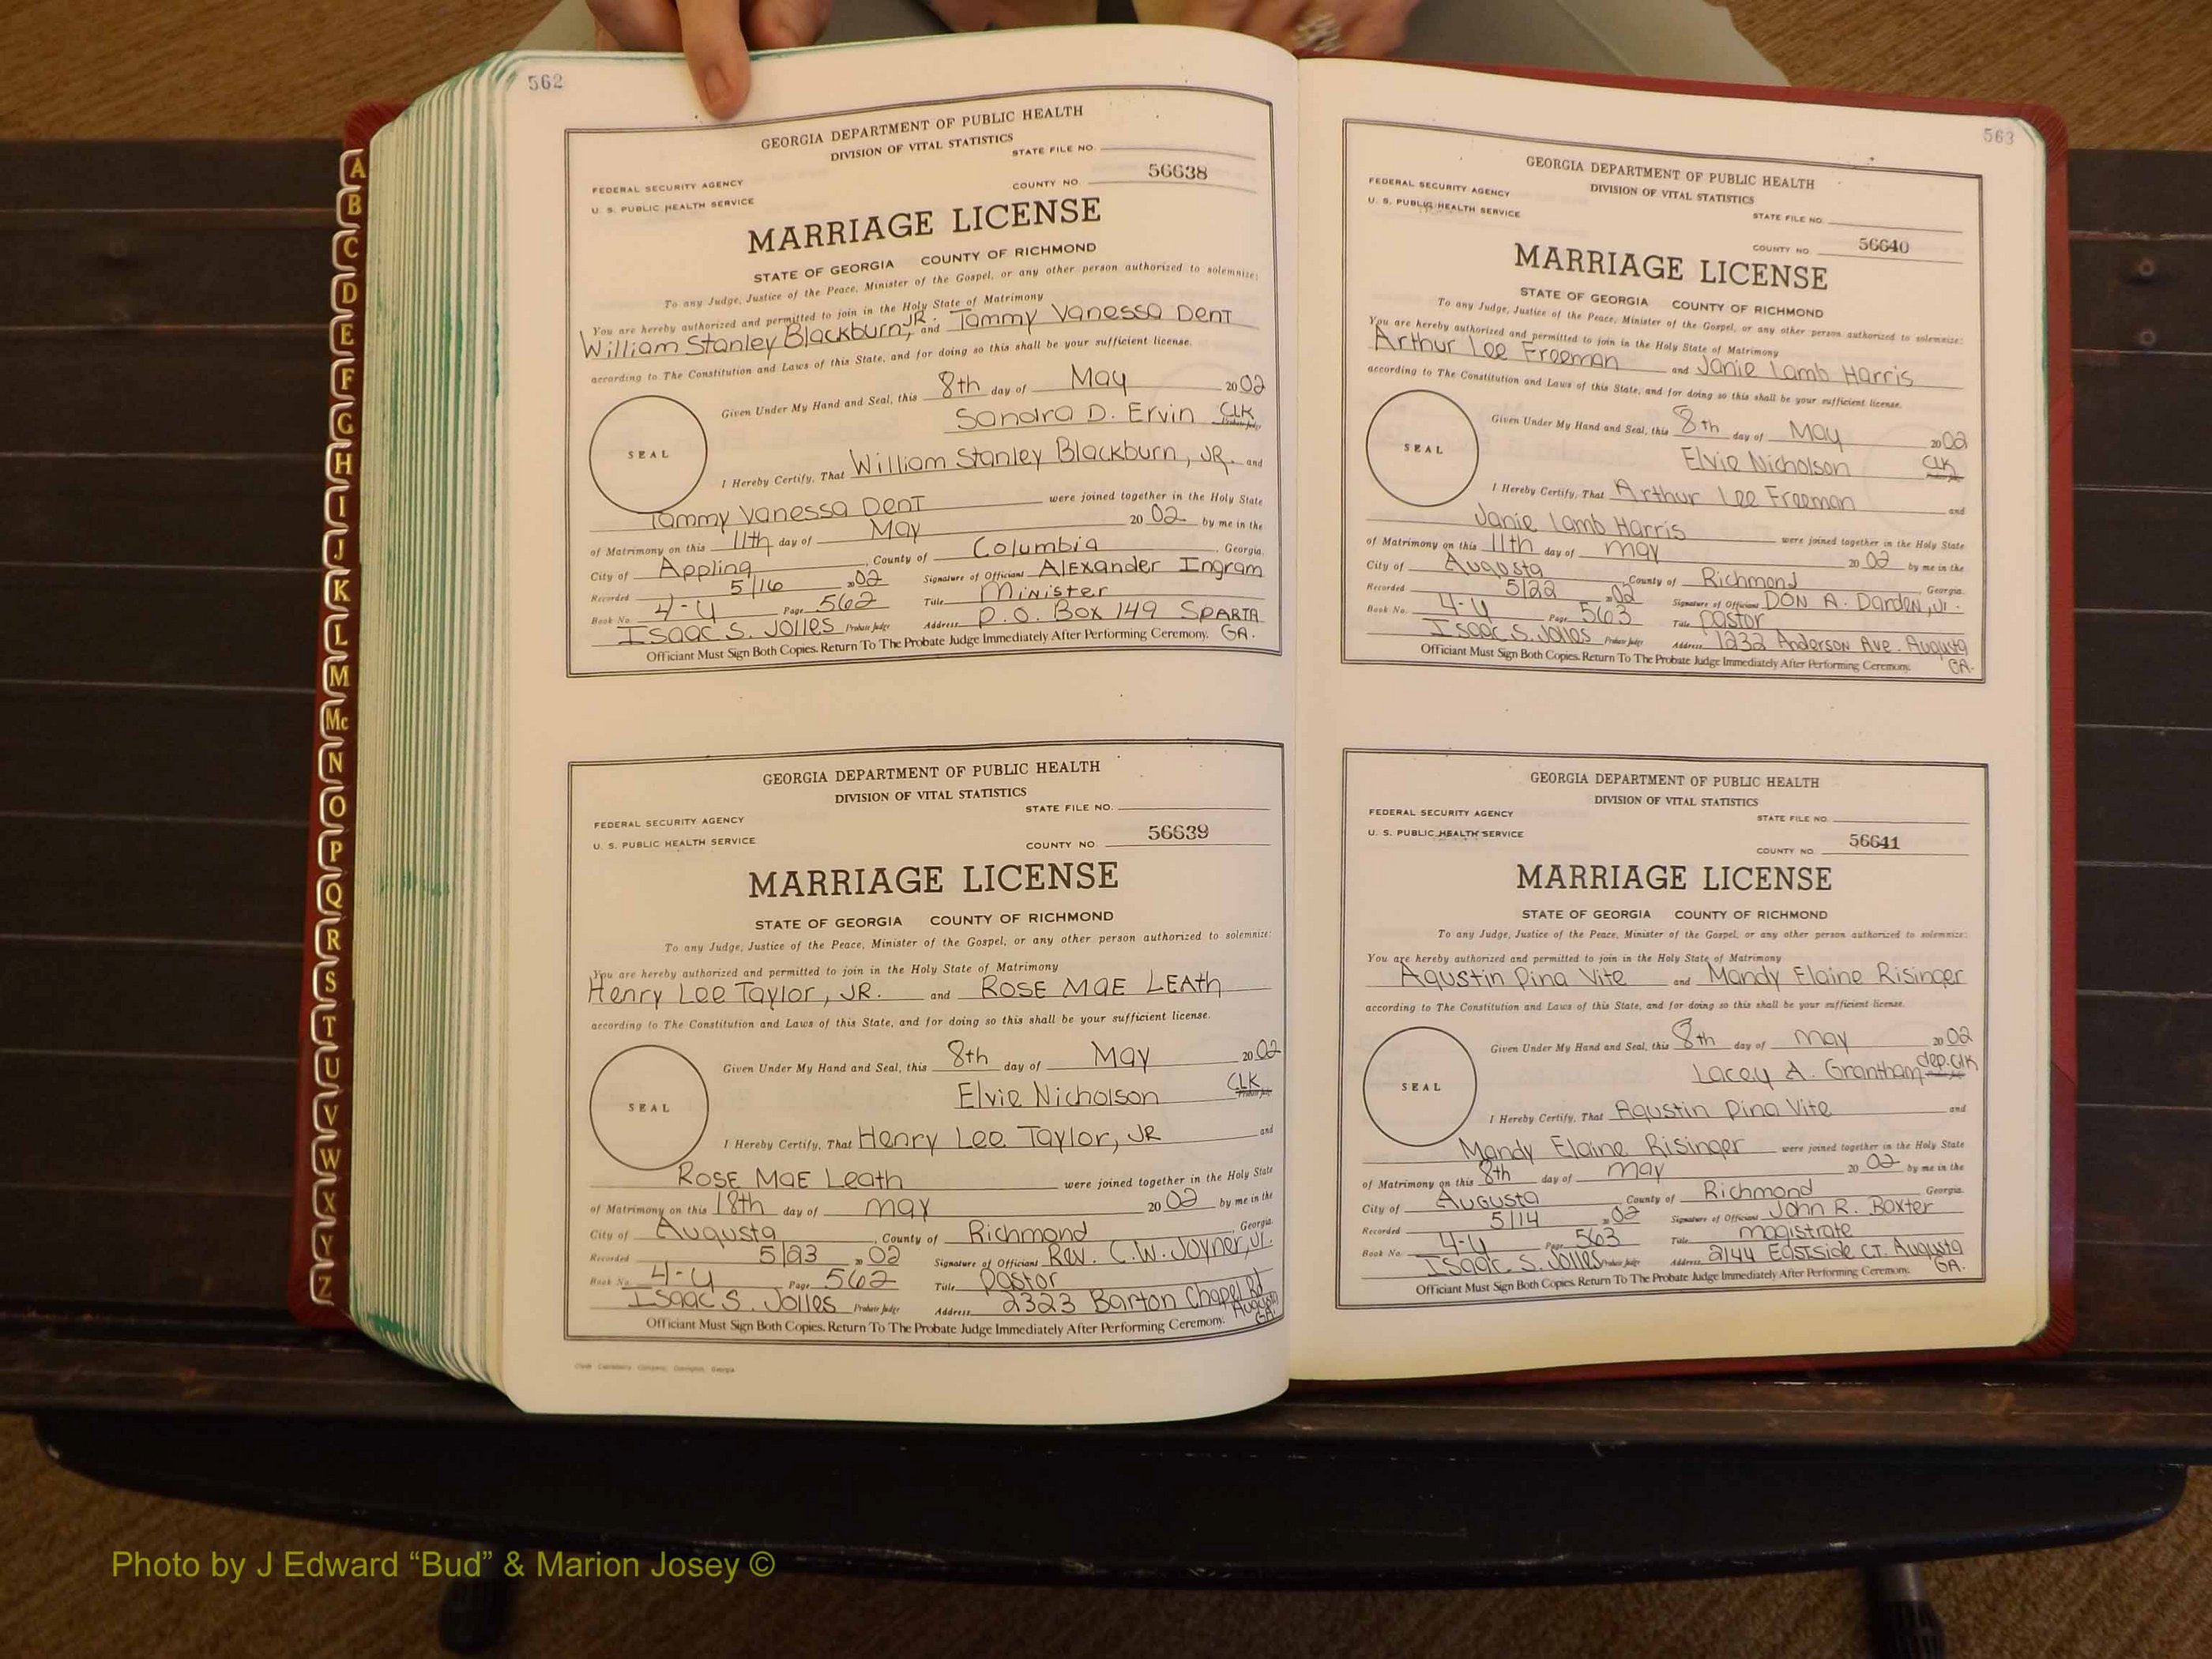 562
GEORGIA DEPARTMENT OF PUBLIC HEALTH
DIVISION OF VITAL STATISTICS
STATE FILE NO.
FEDERAL SECURITY AGENCY
U. S. PUBLIC HEALTH SERVICE
COUNTY NO. 56638
MARRIAGE LICENSE
STATE OF GEORGIA COUNTY OF RICHMOND
To any Judge, Justice of the Peace, Minister of the Gospel, or any other person authorized to solemnize:
You are hereby authorized and permitted to join in the Holy State of Matrimony
William Stanley Blackburn, JR. and Tammy Vanessa Dent
according to The Constitution and Laws of this State, and for doing so this shall be your sufficient license.
Given Under My Hand and Seal, this 8th day of May 2002
Sandra D. Ervin CLK
SEAL
I Hereby Certify, That William Stanley Blackburn, JR. and
Tammy Vanessa Dent were joined together in the Holy State
of Matrimony on this 11th day of May 20 02 by me in the
City of Appling, County of Columbia, Georgia.
Recorded 5/16 2002 Signature of Officiant Alexander Ingram
Book No. 4-U Page 562 Title Minister
Isaac S. Jolles Probate Judge Address P.O. Box 149 Sparta GA.
Officiant Must Sign Both Copies. Return To The Probate Judge Immediately After Performing Ceremony.
GEORGIA DEPARTMENT OF PUBLIC HEALTH
DIVISION OF VITAL STATISTICS
STATE FILE NO.
FEDERAL SECURITY AGENCY
U. S. PUBLIC HEALTH SERVICE
COUNTY NO. 56639
MARRIAGE LICENSE
STATE OF GEORGIA COUNTY OF RICHMOND
To any Judge, Justice of the Peace, Minister of the Gospel, or any other person authorized to solemnize:
You are hereby authorized and permitted to join in the Holy State of Matrimony
Henry Lee Taylor, JR. and Rose Mae Leath
according to The Constitution and Laws of this State, and for doing so this shall be your sufficient license.
Given Under My Hand and Seal, this 8th day of May 2002
Elvie Nicholson CLK
SEAL
I Hereby Certify, That Henry Lee Taylor, JR and
Rose Mae Leath were joined together in the Holy State
of Matrimony on this 18th day of may 20 02 by me in the
City of Augusta, County of Richmond, Georgia.
Recorded 5/23 2002 Signature of Officiant Rev. C.W. Joyner, Jr.
Book No. 4-U Page 562 Title Pastor
Isaac S. Jolles Probate Judge Address 2323 Barton Chapel Rd Augusta GA.
Officiant Must Sign Both Copies. Return To The Probate Judge Immediately After Performing Ceremony.
563
GEORGIA DEPARTMENT OF PUBLIC HEALTH
DIVISION OF VITAL STATISTICS
STATE FILE NO.
FEDERAL SECURITY AGENCY
U. S. PUBLIC HEALTH SERVICE
COUNTY NO. 56640
MARRIAGE LICENSE
STATE OF GEORGIA COUNTY OF RICHMOND
To any Judge, Justice of the Peace, Minister of the Gospel, or any other person authorized to solemnize:
You are hereby authorized and permitted to join in the Holy State of Matrimony
Arthur Lee Freeman and Janie Lamb Harris
according to The Constitution and Laws of this State, and for doing so this shall be your sufficient license.
Given Under My Hand and Seal, this 8th day of May 2002
Elvie Nicholson CLK
SEAL
I Hereby Certify, That Arthur Lee Freeman and
Janie Lamb Harris were joined together in the Holy State
of Matrimony on this 11th day of may 20 02 by me in the
City of Augusta County of Richmond Georgia.
Recorded 5/22 2002 Signature of Officiant Don A. Darden, Jr.
Book No. 4-U Page 563 Title Pastor
Isaac S. Jolles Probate Judge Address 1232 Anderson Ave. Augusta GA.
Officiant Must Sign Both Copies. Return To The Probate Judge Immediately After Performing Ceremony.
GEORGIA DEPARTMENT OF PUBLIC HEALTH
DIVISION OF VITAL STATISTICS
STATE FILE NO.
FEDERAL SECURITY AGENCY
U. S. PUBLIC HEALTH SERVICE
COUNTY NO. 56641
MARRIAGE LICENSE
STATE OF GEORGIA COUNTY OF RICHMOND
To any Judge, Justice of the Peace, Minister of the Gospel, or any other person authorized to solemnize:
You are hereby authorized and permitted to join in the Holy State of Matrimony
Agustin Pina Vite and Mandy Elaine Risinger
according to The Constitution and Laws of this State, and for doing so this shall be your sufficient license.
Given Under My Hand and Seal, this 8th day of may 2002
Lacey A. Grantham dep. Clk
SEAL
I Hereby Certify, That Agustin Pina Vite and
Mandy Elaine Risinger were joined together in the Holy State
of Matrimony on this 8th day of may 20 02 by me in the
City of Augusta County of Richmond Georgia.
Recorded 5/14 2002 Signature of Officiant John R. Baxter
Book No. 4-U Page 563 Title magistrate
Isaac S. Jolles Probate Judge Address 2144 Eastside CT. Augusta GA.
Officiant Must Sign Both Copies. Return To The Probate Judge Immediately After Performing Ceremony.
A
B
C
D
E
F
G
H
I
J
K
L
M
Mc
N
O
P
Q
R
S
T
U
V
W
X
Y
Z
Photo by J Edward “Bud” & Marion Josey ©